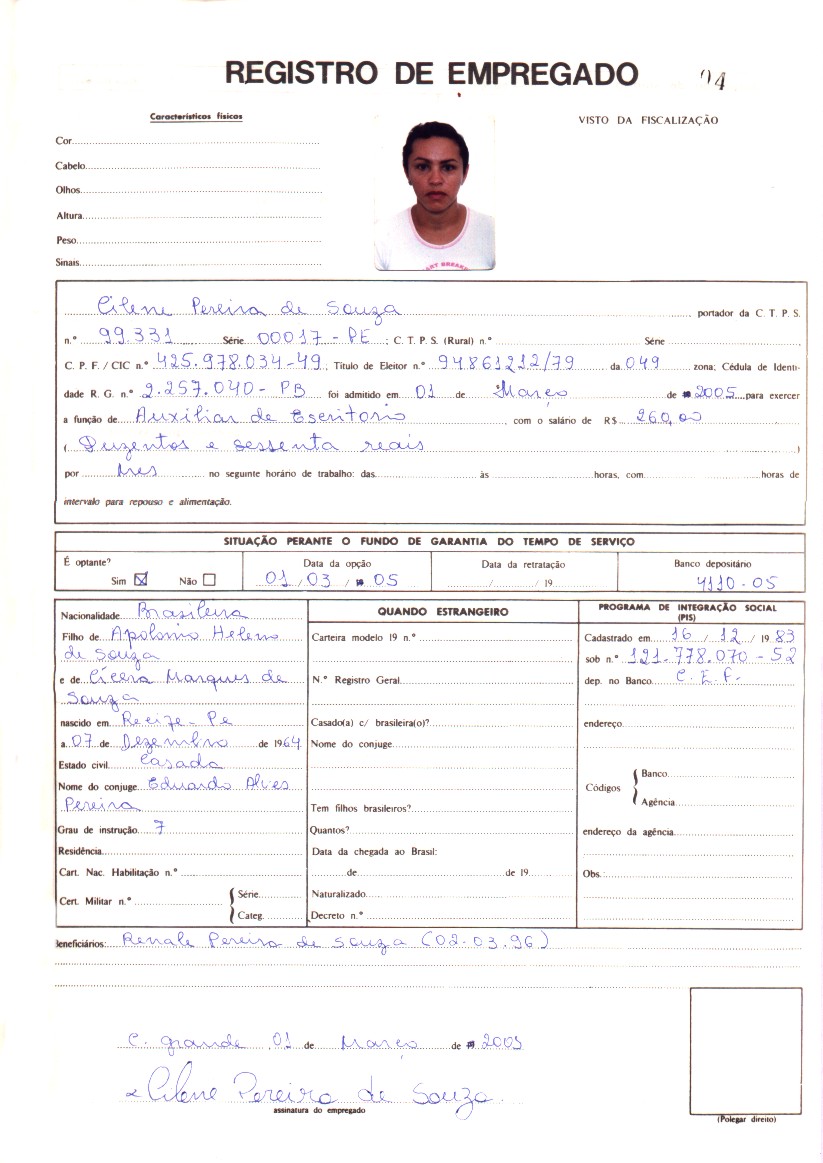 REGISTRO DE EMPREGADO 04
Características físicas
VISTO DA FISCALIZAÇÃO
Cor
Cabelo
Olhos
Altura
Peso
Sinais
Cilene Pereira de Souza, portador da C. T. P. S.
n.º 99.331 Série 00017 - PE ; C. T. P. S. (Rural) n.º Série
C. P. F. / CIC n.º 425.978.034-49, Titulo de Eleitor n.º 94861212/79 da 049 zona; Cédula de Identi-
dade R. G. n.º 2.257.040 - PB foi admitido em 01 de Março de 2005 para exercer
a função de Auxiliar de Escritorio, com o salário de R$ 260,00
(Duzentos e sessenta reais)
por mes no seguinte horário de trabalho: das às horas, com horas de
intervalo para repouso e alimentação.
SITUAÇÃO PERANTE O FUNDO DE GARANTIA DO TEMPO DE SERVIÇO
É optante? Data da opção Data da retratação Banco depositário
Sim ☒ Não ☐ 01 / 03 / 05 / / 19 4110-05
Nacionalidade Brasileira
Filho de Apolonio Heleno
de Souza
e de Cícera Marques de
Souza
nascido em Recife - Pe
a 07 de Dezembro de 1964
Estado civil Casada
Nome do conjuge Eduardo Alves
Pereira
Grau de instrução 7
Residência
Cart. Nac. Habilitação n.º
Cert. Militar n.º { Série
Categ.
QUANDO ESTRANGEIRO
Carteira modelo 19 n.º
N.º Registro Geral
Casado(a) c/ brasileira(o)?
Nome do conjuge
Tem filhos brasileiros?
Quantos?
Data da chegada ao Brasil:
de de 19
Naturalizado
Decreto n.º
PROGRAMA DE INTEGRAÇÃO SOCIAL
(PIS)
Cadastrado em 16 / 12 / 19 83
sob n.º 121.778.070 - 52
dep. no Banco C. E. F.
endereço
Códigos { Banco
Agência
endereço da agência
Obs.:
Beneficiários: Renale Pereira de Souza (02.03.96)
C. grande 01 de Março de 2005
Cilene Pereira de Souza
assinatura do empregado
(Polegar direito)